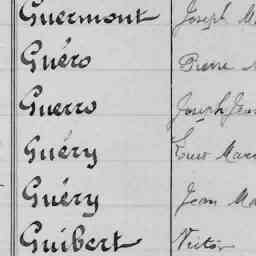 Guermont Joseph M
Guéro Pierre
Guerro Joseph Jean
Guéry Mar
Guéry Jean Ma
Guibert Victor